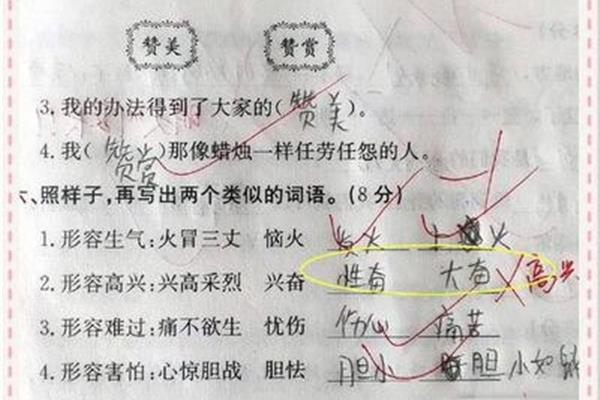 赞美 赞赏
3.我的办法得到了大家的(赞美)。
4.我(赞赏)那像蜡烛一样任劳任怨的人。
六、照样子,再写出两个类似的词语。(8分)
1.形容生气:火冒三丈 恼火 发火
2.形容高兴:兴高采烈 兴奋 性奋 大奋 高兴
3.形容难过:痛不欲生 忧伤 伤心 痛苦
4.形容害怕:心惊胆战 胆怯 胆小 胆小如鼠